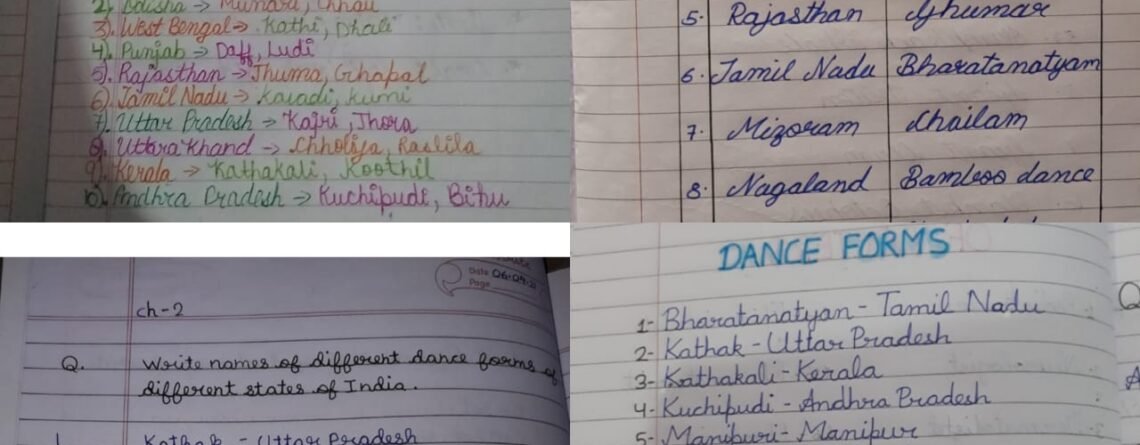 2) Odisha → Munara, Chhau
3). West Bengal → Kathi, Dhali
4). Punjab → Daff, Ludi
5). Rajasthan → Jhuma, Ghapal
6) Tamil Nadu → Kavadi, Kumi
7). Uttar Pradesh → Kajri, Jhora
8). Uttara Khand → Chholiya, Raslila
9). Kerala → Kathakali, Koothil
10). Andhra Pradesh → Kuchipudi, Bihu
5. Rajasthan Ghumar
6. Tamil Nadu Bharatanatyam
7. Mizoram Chailam
8. Nagaland Bamboo dance
Date
Page
ch-2
Q. Write names of different dance forms of
different states of India.
1. Kathak - Uttar Pradesh
DANCE FORMS
1- Bharatanatyan - Tamil Nadu
2- Kathak - Uttar Pradesh
3- Kathakali - Kerala
4- Kuchipudi - Andhra Pradesh
5- Manipuri - Manipur